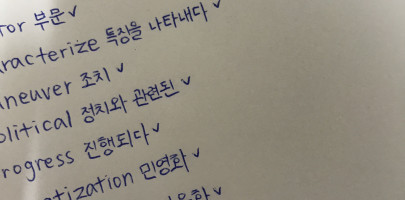 tor 부문✓
aracterize 특징을 나타내다✓
aneuver 조치✓
olitical 정치와 관련된✓
rogress 진행되다✓
atization 민영화✓